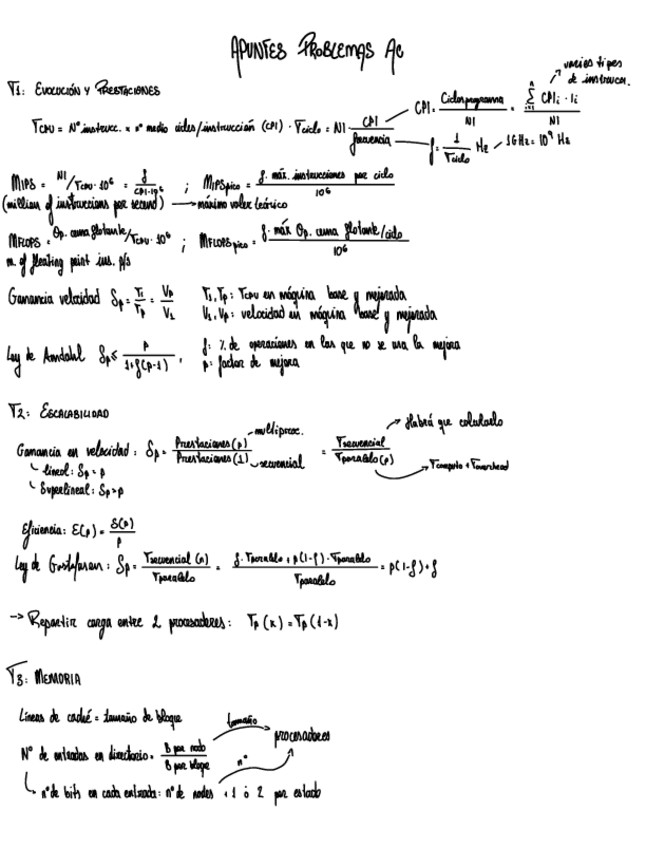 APUNTES PROBLEMAS AC
T1: EVOLUCIÓN Y PRESTACIONES
varios tipos de instrucc.
TCPU = Nº instrucc. × nº medio ciclos/instrucción (CPI) · Tciclo = NI · CPI / frecuencia
CPI = Ciclos programa / NI = Σ CPIi · Ii / NI
f = 1 / Tciclo Hz → 1GHz = 10⁹ Hz
MIPS = NI / TCPU · 10⁶ = f / CPI · 10⁶ ; MIPSpico = f · máx. instrucciones por ciclo / 10⁶
(million of instructions per second) → máximo valor teórico
MFLOPS = Op. coma flotante / TCPU · 10⁶ ; MFLOPSpico = f · máx Op. coma flotante/ciclo / 10⁶
m. of floating point ins. p/s
Ganancia velocidad Sp = T1 / Tp = Vp / V1
T1, Tp: TCPU en máquina base y mejorada
V1, Vp: velocidad en máquina base y mejorada
Ley de Amdahl Sp ≤ p / 1+f(p-1) ,
f: % de operaciones en las que no se usa la mejora
p: factor de mejora
T2: ESCALABILIDAD
Ganancia en velocidad: Sp = Prestaciones(p) / Prestaciones(1) = Tsecuencial / Tparalelo(p)
multiproc.
secuencial
Habrá que calcularlo
Tcomputo + Toverhead
lineal: Sp = p
Superlineal: Sp > p
Eficiencia: E(p) = S(p) / p
Ley de Gustafson: Sp = Tsecuencial (n) / Tparalelo = f · Tparalelo + p(1-f) · Tparalelo / Tparalelo = p(1-f)+f
→ Repartir carga entre 2 procesadores: Tp (x) = Tp (1-x)
T3: MEMORIA
Líneas de caché = tamaño de bloque
Nº de entradas en directorio = B por nodo / B por bloque
tamaño
procesadores
nº
nº de bits en cada entrada: nº de nodos + 1 ó 2 por estado